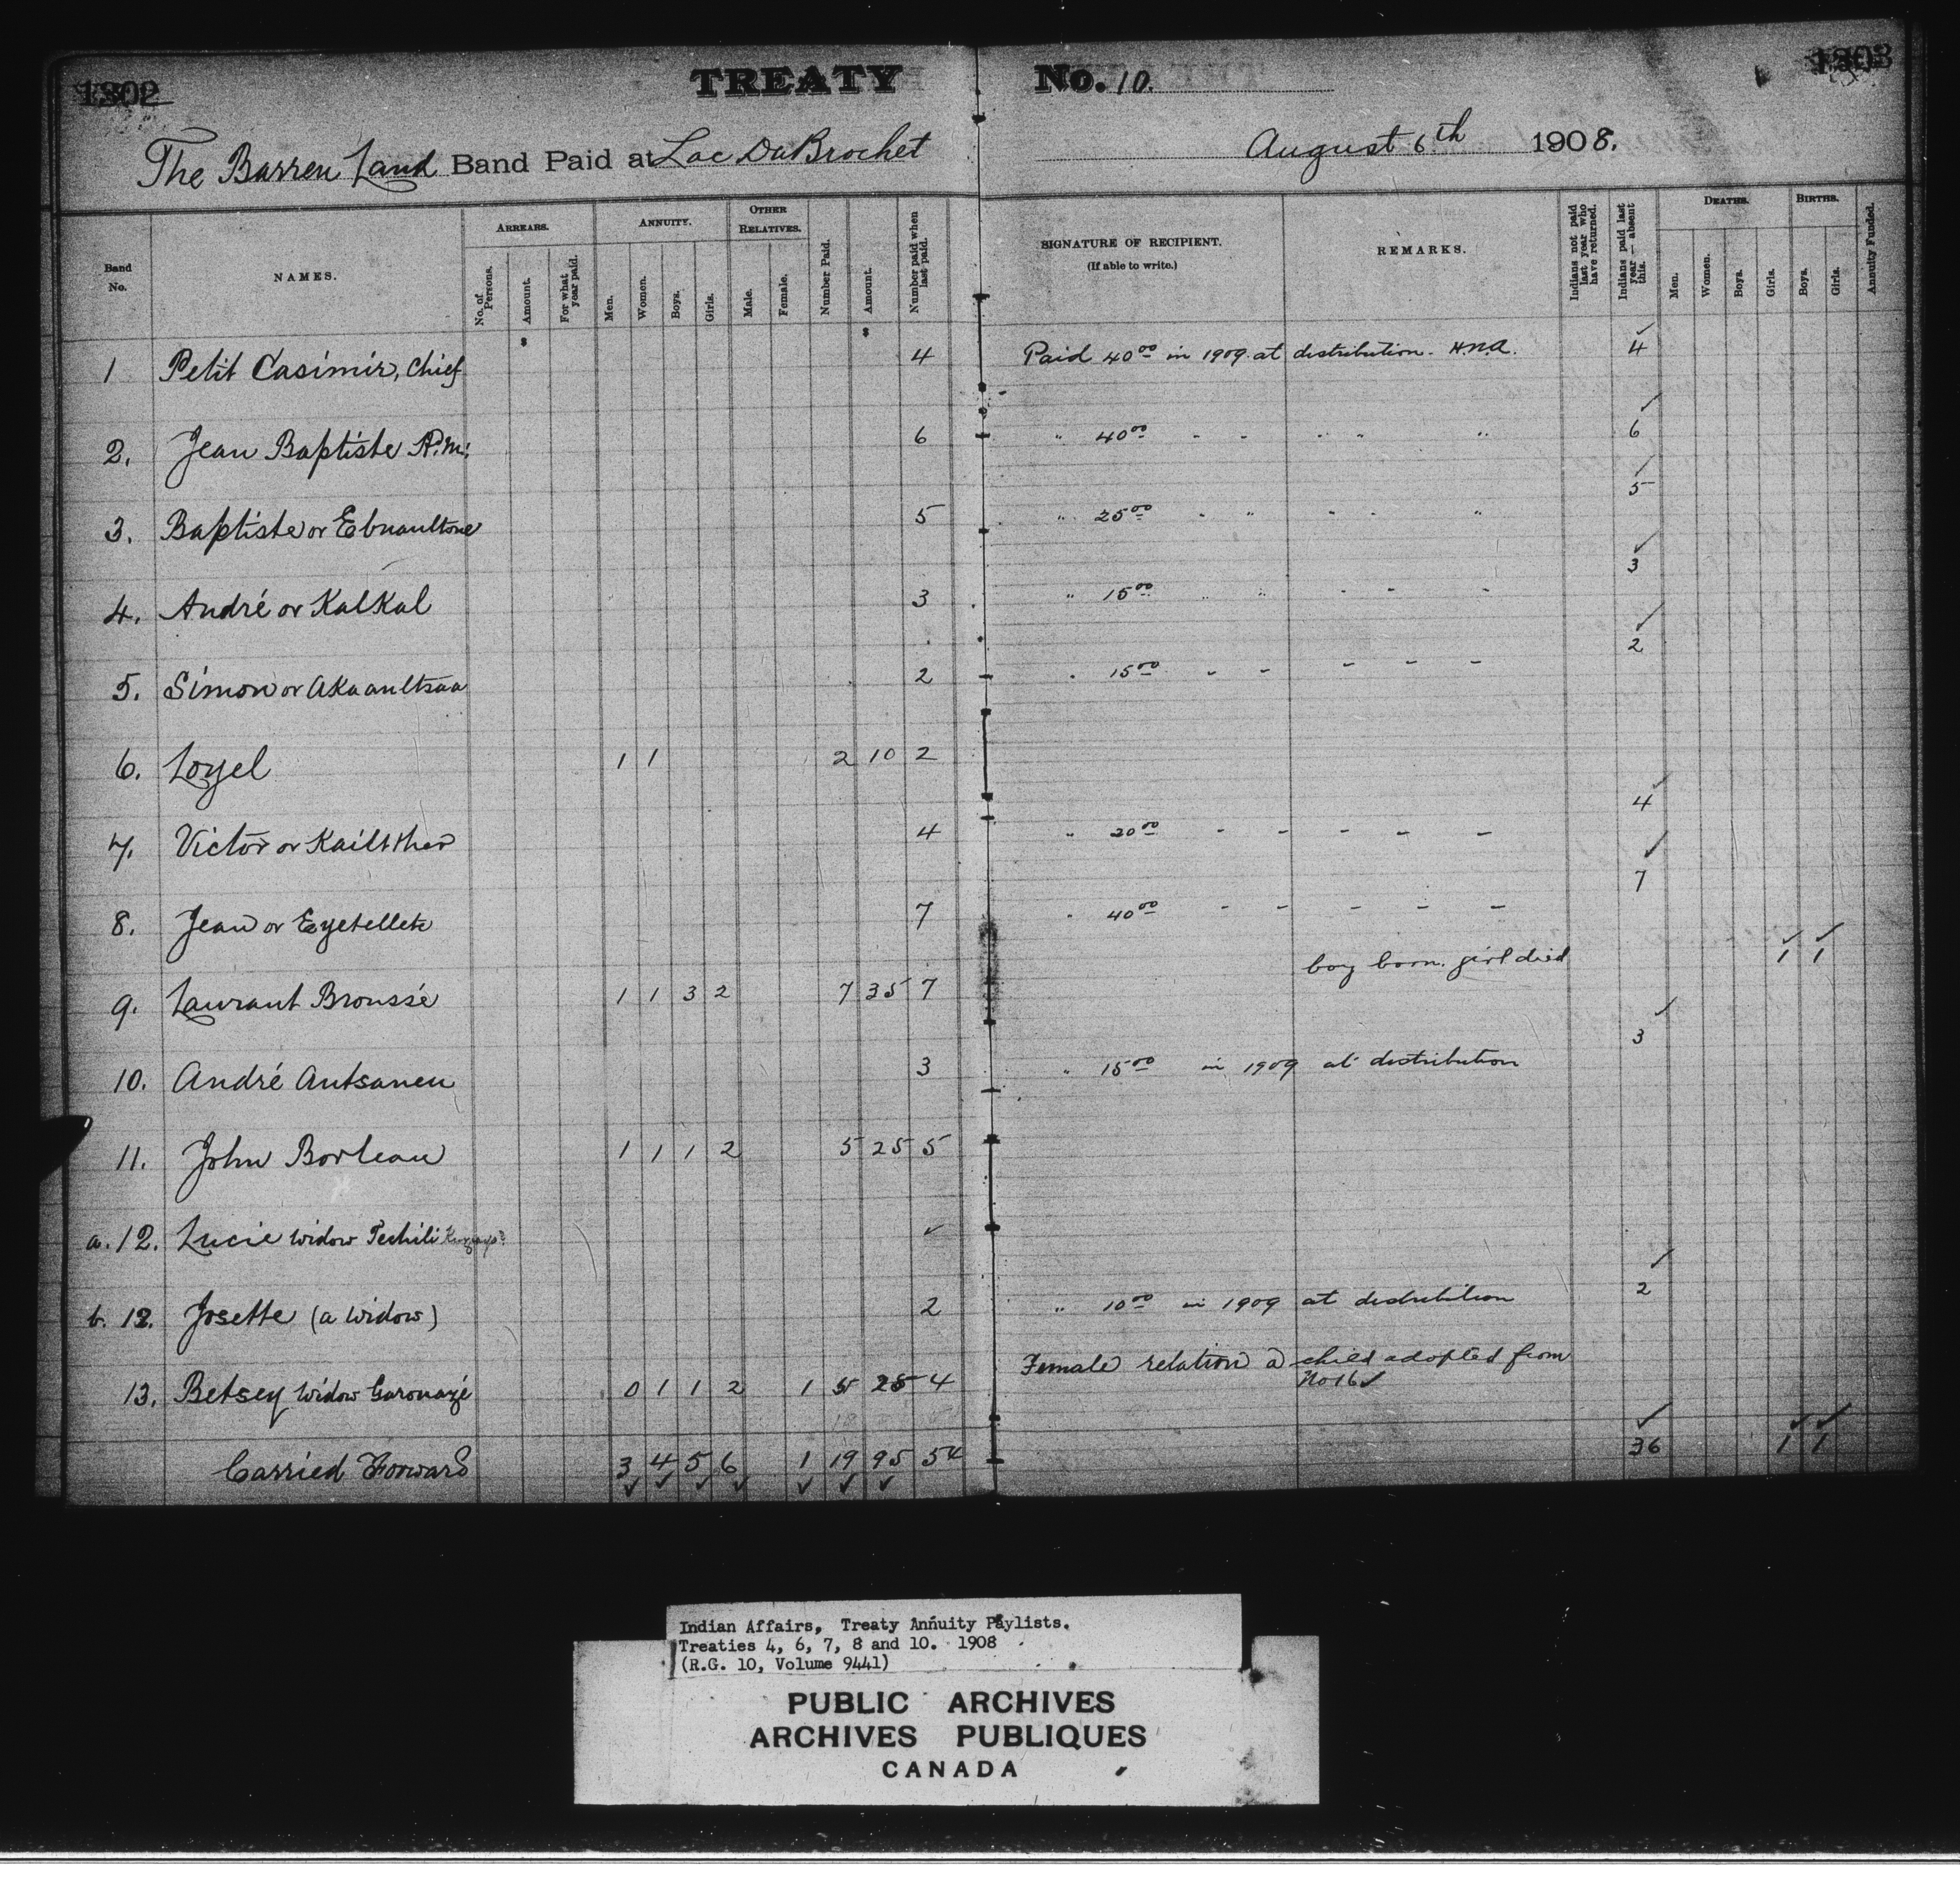 1302
TREATY No. 10.
1303
The Barren Land Band Paid at Lac Du Brochet August 6th 1908.
Band No.
NAMES.
ARREARS.
No. of Persons.
Amount.
For what year paid.
ANNUITY.
Men.
Women.
Boys.
Girls.
OTHER RELATIVES.
Male.
Female.
Number Paid.
Amount.
Number paid when last paid.
SIGNATURE OF RECIPIENT.
(If able to write.)
REMARKS.
Indians not paid last year who have returned.
Indians paid last year — absent this.
DEATHS.
Men.
Women.
Boys.
Girls.
BIRTHS.
Boys.
Girls.
Annuity Funded.
1 Petit Casimir, Chief 4 Paid 40 00 in 1909 at distribution. H.N.A. 4
2. Jean Baptiste 6 " 40 00 - - " " " 6
3. Baptiste or Ebnaultone 5 " 25 00 - " - - " 5
4. André or KalKal 3 " 15 00 " " - - - 3
5. Simon or Akaanltsaa 2 " 15 00 - - - - - 2
6. Loyel 1 1 2 10 2
7. Victor or Kailther 4 " 20 00 - - - - - 4
8. Jean or Eyetellek 7 " 40 00 - - - - - 7
9. Laurant Broussé 1 1 3 2 7 35 7 boy born. girl died 1 1
10. André Antsanen 3 " 15 00 in 1909 at distribution 3
11. John Borleau 1 1 1 2 5 25 5
a. 12. Lucie widow Techili ✓
b. 12. Josette (a widow) 2 " 10 00 in 1909 at distribution 2
13. Betsey widow Garouazé 0 1 1 2 1 5 25 4 Female relation a child adopted from
No 16 ✓
Carried Forward 3 4 5 6 1 19 95 54 36 1 1
Indian Affairs, Treaty Annuity Paylists.
Treaties 4, 6, 7, 8 and 10. 1908
(R.G. 10, Volume 9441)
PUBLIC ARCHIVES
ARCHIVES PUBLIQUES
CANADA